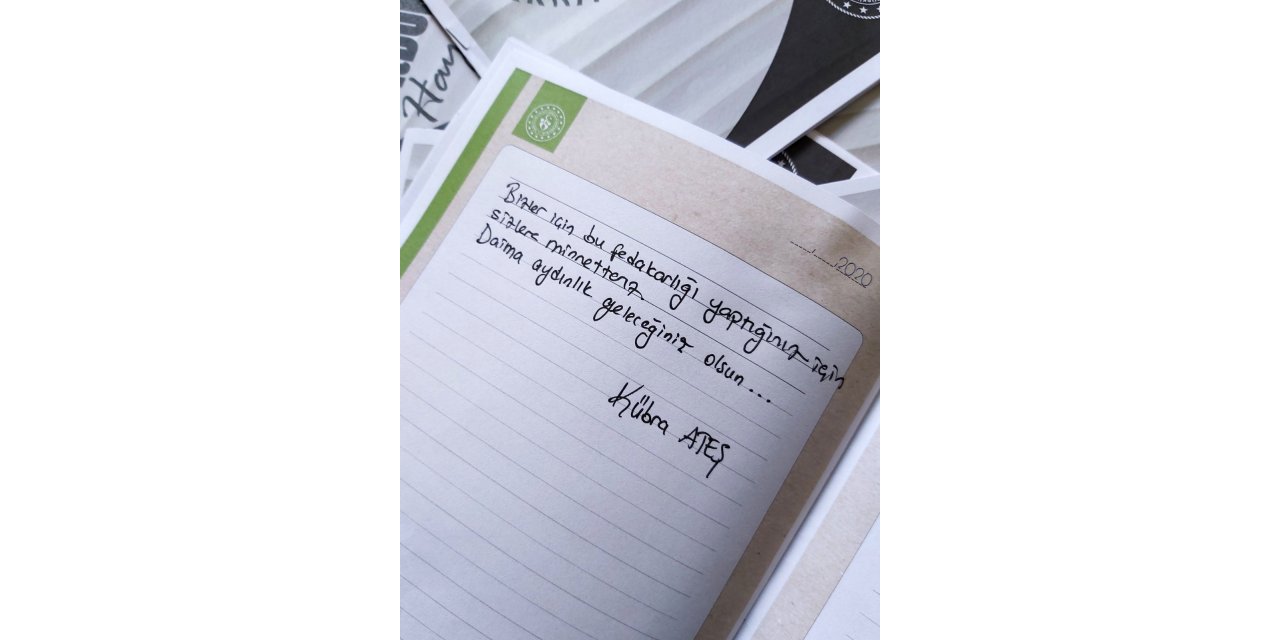 Hay
....../......2020
Bizler için bu fedakarlığı yaptığınız için
sizlere minnettarız
Daima aydınlık geleceğiniz olsun...
Kübra ATEŞ